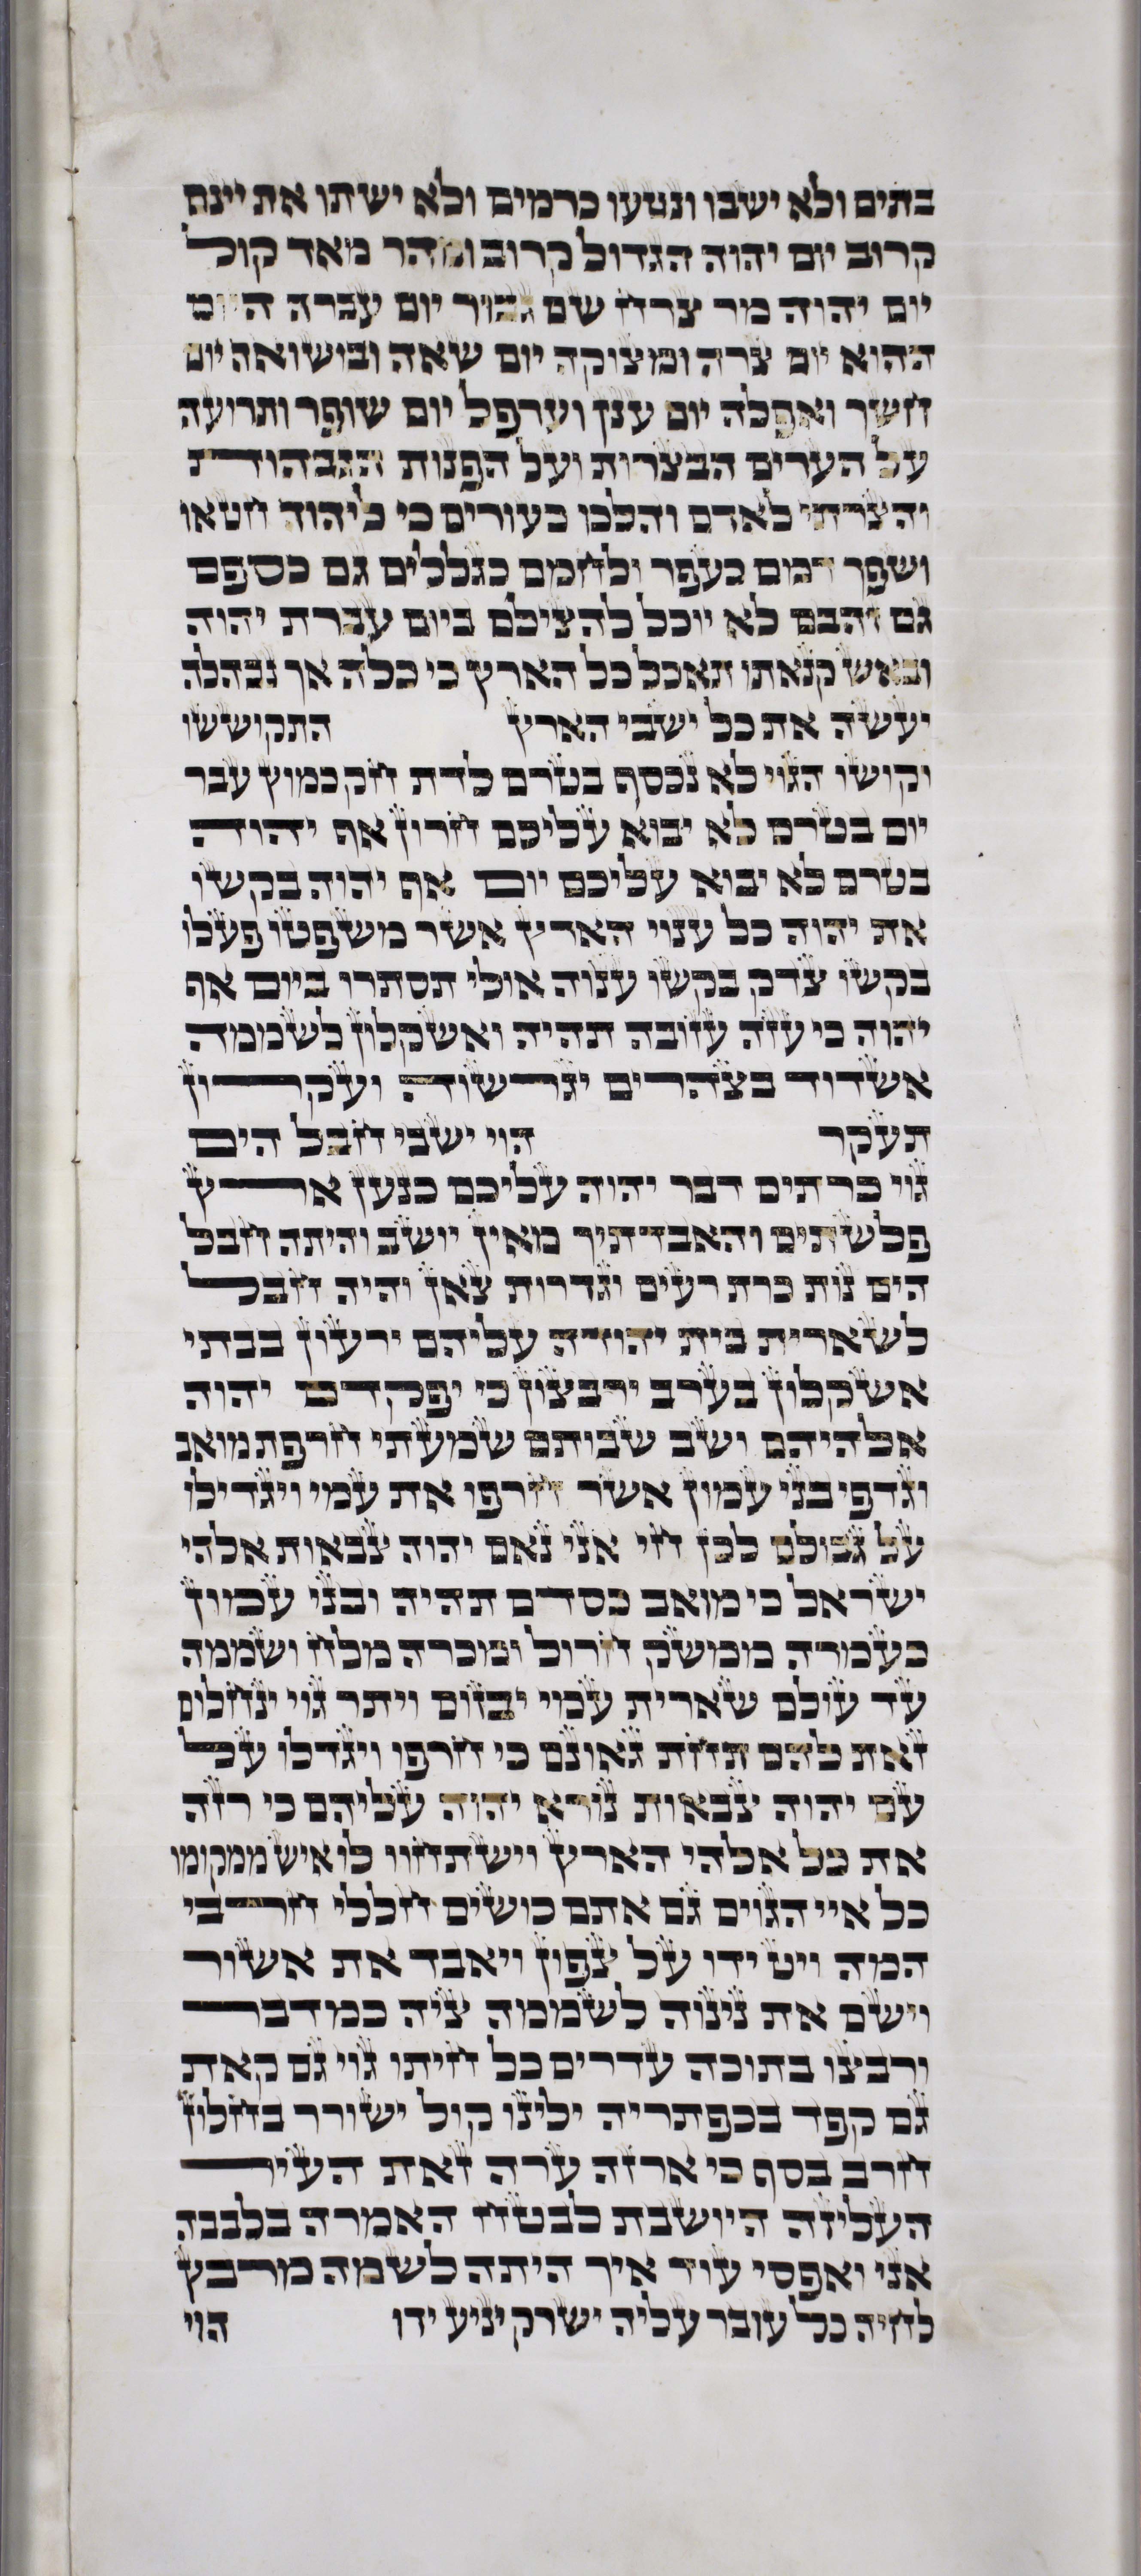 בתים ולא ישבו ונטעו כרמים ולא ישתו את יינם
קרוב יום יהוה הגדול קרוב ומהר מאד קול
יום יהוה מר צרח שם גבור יום עברה היום
ההוא יום צרה ומצוקה יום שאה ומשואה יום
חשך ואפלה יום ענן וערפל יום שופר ותרועה
על הערים הבצרות ועל הפנות הגבהות
והצרתי לאדם והלכו כעורים כי ליהוה חטאו
ושפך דמם כעפר ולחמם כגללים גם כספם
גם זהבם לא יוכל להצילם ביום עברת יהוה
ובאש קנאתו תאכל כל הארץ כי כלה אך נבהלה
יעשה את כל ישבי הארץ התקוששו
וקושו הגוי לא נכסף בטרם לדת חק כמוץ עבר
יום בטרם לא יבוא עליכם חרון אף יהוה
בטרם לא יבוא עליכם יום אף יהוה בקשו
את יהוה כל ענוי הארץ אשר משפטו פעלו
בקשו צדק בקשו ענוה אולי תסתרו ביום אף
יהוה כי עזה עזובה תהיה ואשקלון לשממה
אשדוד בצהרים יגרשוה ועקרון
תעקר הוי ישבי חבל הים
גוי כרתים דבר יהוה עליכם כנען ארץ
פלשתים והאבדתיך מאין יושב והיתה חבל
הים נות כרת רעים וגדרות צאן והיה חבל
לשארית בית יהודה עליהם ירעון בבתי
אשקלון בערב ירבצון כי יפקדם יהוה
אלהיהם ושב שבותם שמעתי חרפת מואב
וגדפי בני עמון אשר חרפו את עמי ויגדילו
על גבולם לכן חי אני נאם יהוה צבאות אלהי
ישראל כי מואב כסדם תהיה ובני עמון
כעמרה ממשק חרול ומכרה מלח ושממה
עד עולם שארית עמי יבזום ויתר גוי ינחלום
זאת להם תחת גאונם כי חרפו ויגדלו על
עם יהוה צבאות נורא יהוה עליהם כי רזה
את כל אלהי הארץ וישתחוו לו איש ממקומו
כל איי הגוים גם אתם כושים חללי חרבי
המה ויט ידו על צפון ויאבד את אשור
וישם את נינוה לשממה ציה כמדבר
ורבצו בתוכה עדרים כל חיתו גוי גם קאת
גם קפד בכפתריה ילינו קול ישורר בחלון
חרב בסף כי ארזה ערה זאת העיר
העליזה היושבת לבטח האמרה בלבבה
אני ואפסי עוד איך היתה לשמה מרבץ
לחיה כל עובר עליה ישרק יניע ידו הוי